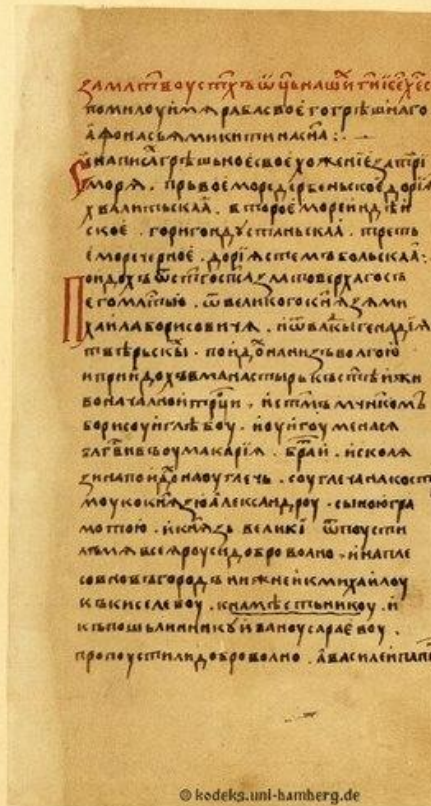 За млтвоу стхъ ѿць нашй ги ісе хе с
помилоуй мя раба своего грѣшнаго
аѳонасья микитина сна :.
Се написа грѣшьное свое хоженїе за три
моря . прьвое море дербеньское дорїя
хвалитьскаа . второе море индѣй
ское . горигондустаньскаа . третье
море черное . дорїя стемъбольскаа :.
Поидохъ ѿ стго спса златоверхаго съ
его млтью . ѿ великого кнѧзя ми
хаила борисовичя . и ѿ влкы генадїя
твѣрьскы . поидо на низъ волгою
и приидохъ в манастырь къ стѣй жи
воначалной трци . и стмъ мчнкомъ
борисоу и глѣбоу . и оу игоумена ся
блгвивъ оу макарїя . братй . и с коля
зина поидо на оуглечь . с оуглеча на кост
моу ко кнѧзю александроу . с ыною гра
мотою . и кнѧзь великї ѿпоусти
мя всея роуси доброволно . и на пле
со в новъгородъ нижней к михайлоу
къ киселевоу . к намѣстьникоу . и
къ пошьлинникоу ивану сараевоу .
пропоустили доброволно . а василей папи
© kodeks.uni-hamberg.de